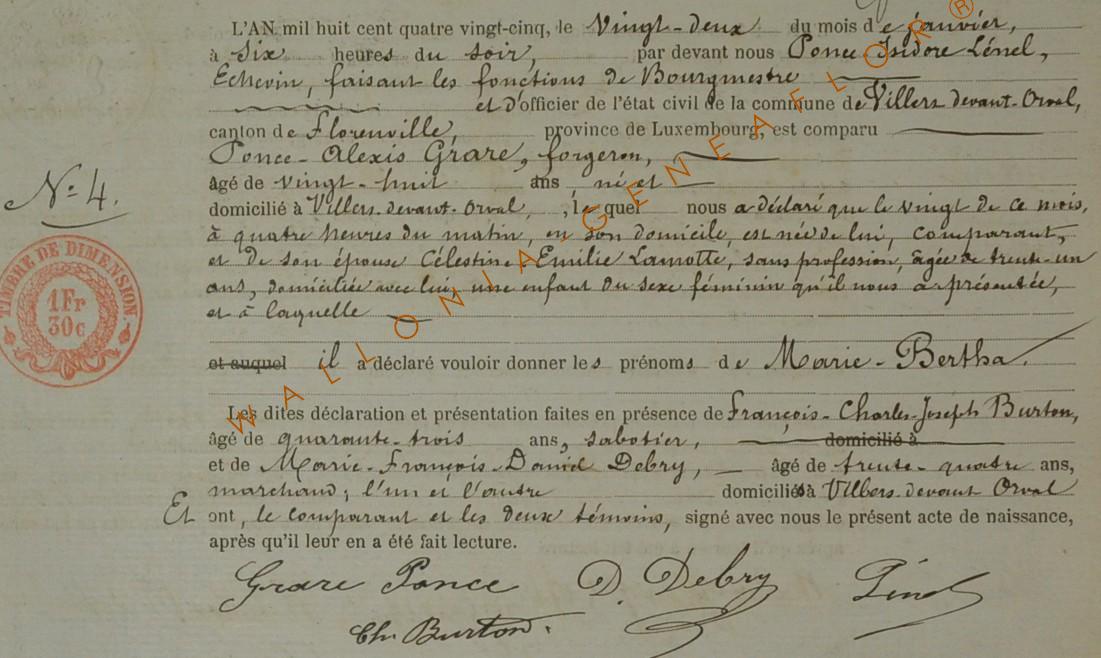 L'AN mil huit cent quatre vingt-cinq, le Vingt-deux du mois de janvier,
à Six heures du soir, par devant nous Ponce Isidore Lénel,
Echevin, faisant les fonctions de Bourgmestre
et d'officier de l'état civil de la commune de Villers devant-Orval,
canton de Florenville, province de Luxembourg, est comparu
Ponce-Alexis Grare, forgeron,
âgé de vingt-huit ans, né et
domicilié à Villers-devant-Orval, , le quel nous a déclaré que le vingt de ce mois,
à quatre heures du matin, en son domicile, est née de lui, comparant,
et de son épouse Célestine Emilie Lamotte, sans profession, âgée de trente-un
ans, domiciliée avec lui, une enfant du sexe féminin qu'il nous a présentée,
et à laquelle
et auquel il a déclaré vouloir donner les prénoms de Marie-Bertha.
Les dites déclaration et présentation faites en présence de François-Charles-Joseph Burton,
âgé de quarante-trois ans, sabotier, domicilié à
et de Marie-François-Daniel Debry, âgé de trente-quatre ans,
marchand; l'un et l'autre domiciliés à Villers-devant Orval
Et ont, le comparant et les deux témoins, signé avec nous le présent acte de naissance,
après qu'il leur en a été fait lecture.
Grare Ponce D. Debry
Ch. Burton.
N° 4.
TIMBRE DE DIMENSION.
1Fr
30c
WALLONIA GENEALOR®